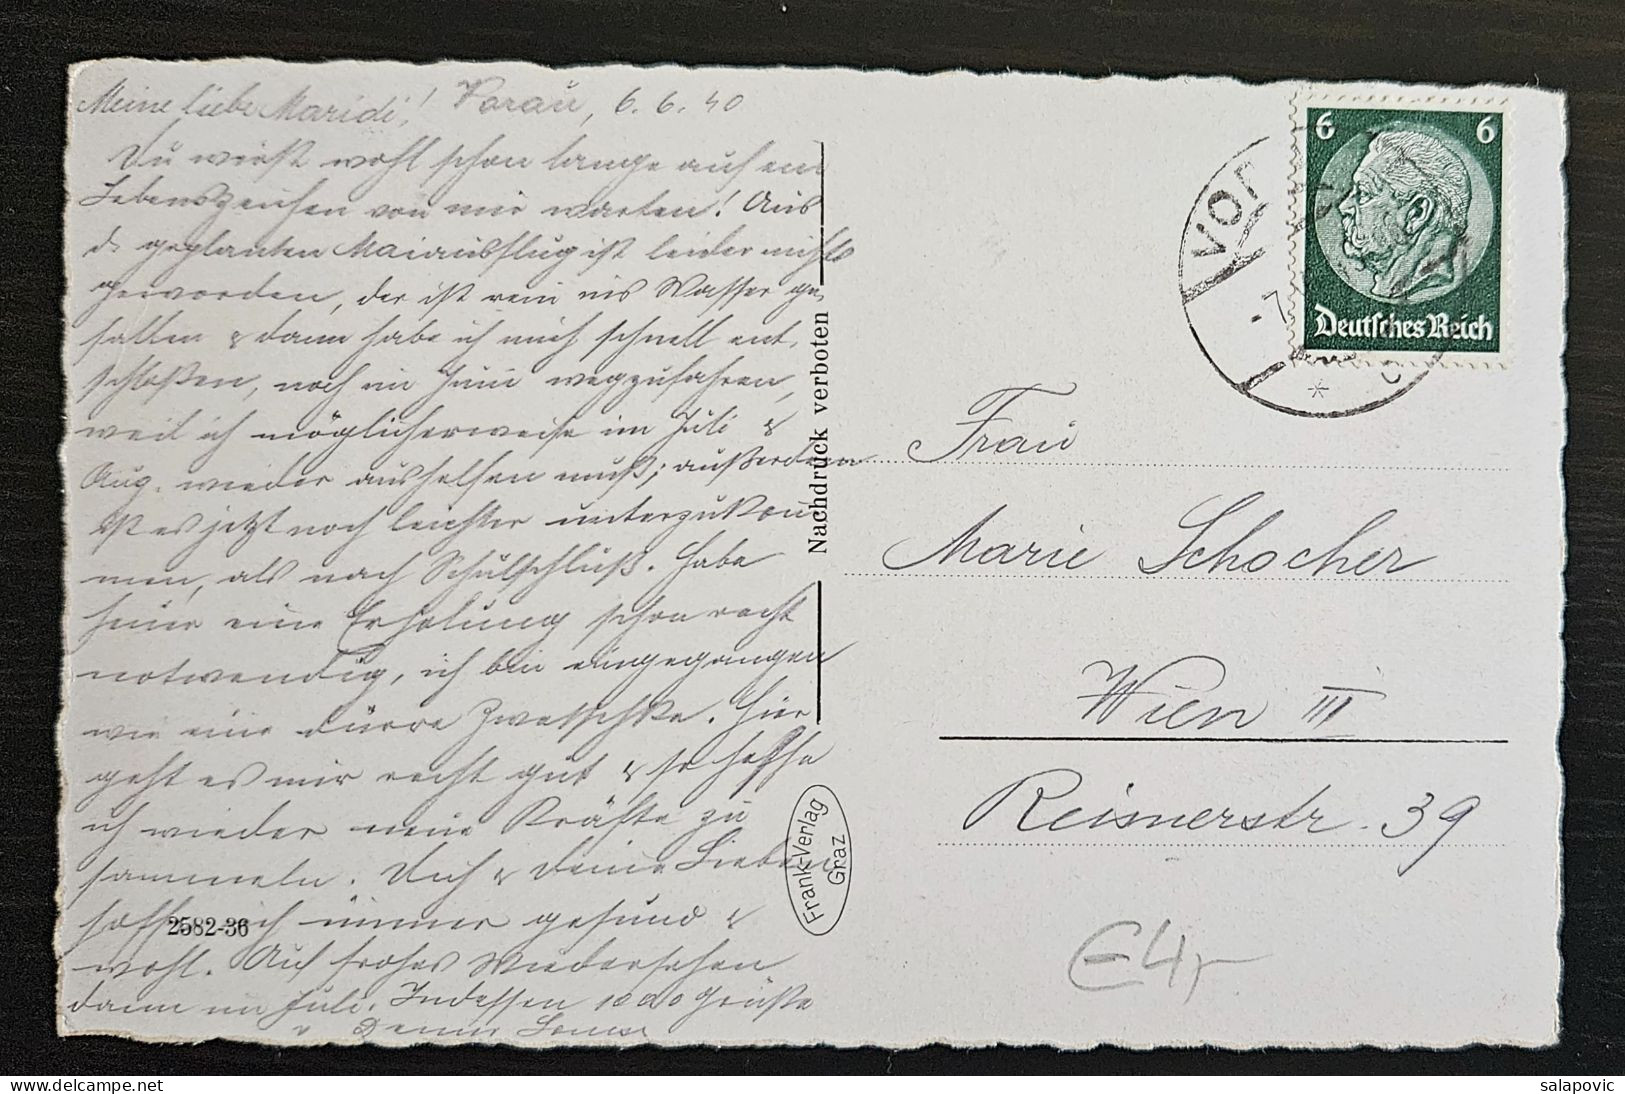 Meine liebe Maridi! Vorau, 6.6.40
Du wirst wohl schon lange auf ein
Lebenszeichen von mir warten! Aus
d. geplanten Maiausflug ist leider nichts
geworden, der ist rein ins Wasser ge-
fallen & dann habe ich mich schnell ent-
schloßen, noch im Juni wegzufahren,
weil ich möglicherweise im Juli &
Aug. wieder aushelfen muß; außerdem
ist es jetzt noch leichter unterzukom
men, als nach Schulschluß. Habe
heuer eine Erholung schon recht
notwendig, ich bin eingegangen
wie eine dürre Zwetschke. Hier
geht es mir recht gut & so hoffe
ich wieder neue Kräfte zu
sammeln. Dich & deine Lieben
hoffe ich immer gesund &
wohl. Auf frohes Wiedersehen
dann im Juli. Indessen 1000 Grüße
v. Deiner
2582-36
Nachdruck verboten
Frank-Verlag
Graz
VOR
-7.
6 6
Deutsches Reich
Frau
Marie Schocher
Wien III
Reisnerstr. 39
€4,-
salapovic